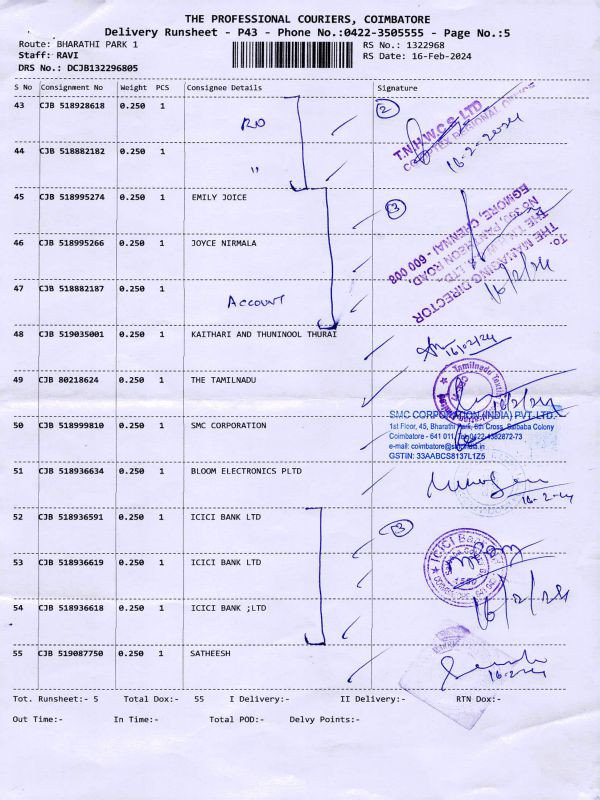 THE PROFESSIONAL COURIERS, COIMBATORE
Delivery Runsheet - P43 - Phone No.:0422-3505555 - Page No.:5
Route: BHARATHI PARK 1 RS No.: 1322968
Staff: RAVI RS Date: 16-Feb-2024
DRS No.: DCJB132296805
S No Consignment No Weight PCS Consignee Details Signature
43 CJB 518928618 0.250 1 RO 2
T.N.H.W.C.S. LTD
REGIONAL OFFICE
16-2-2024
44 CJB 518882182 0.250 1 "
45 CJB 518995274 0.250 1 EMILY JOICE 3
46 CJB 518995266 0.250 1 JOYCE NIRMALA
To.
THE MANAGING DIRECTOR
PANTHEON ROAD,
EGMORE, CHENNAI - 600 008
16/2/24
47 CJB 518882187 0.250 1 ACCOUNT
48 CJB 519035001 0.250 1 KAITHARI AND THUNINOOL THURAI
16/02/24
49 CJB 80218624 0.250 1 THE TAMILNADU
Tamilnadu
16/2/24
50 CJB 518999810 0.250 1 SMC CORPORATION
SMC CORPORATION (INDIA) PVT. LTD.
1st Floor, 45, Bharathi Park, 6th Cross, Saibaba Colony
Coimbatore - 641 011, 0422-4382872-73
e-mail: coimbatore@smcind.in
GSTIN: 33AABCS8137L1Z5
51 CJB 518936634 0.250 1 BLOOM ELECTRONICS PLTD
16-2-24
52 CJB 518936591 0.250 1 ICICI BANK LTD 3
53 CJB 518936619 0.250 1 ICICI BANK LTD
ICICI Bank
54 CJB 518936618 0.250 1 ICICI BANK ;LTD
16/2/24
55 CJB 519087750 0.250 1 SATHEESH
16-2-24
Tot. Runsheet:- 5 Total Dox:- 55 I Delivery:- II Delivery:- RTN Dox:-
Out Time:- In Time:- Total POD:- Delvy Points:-